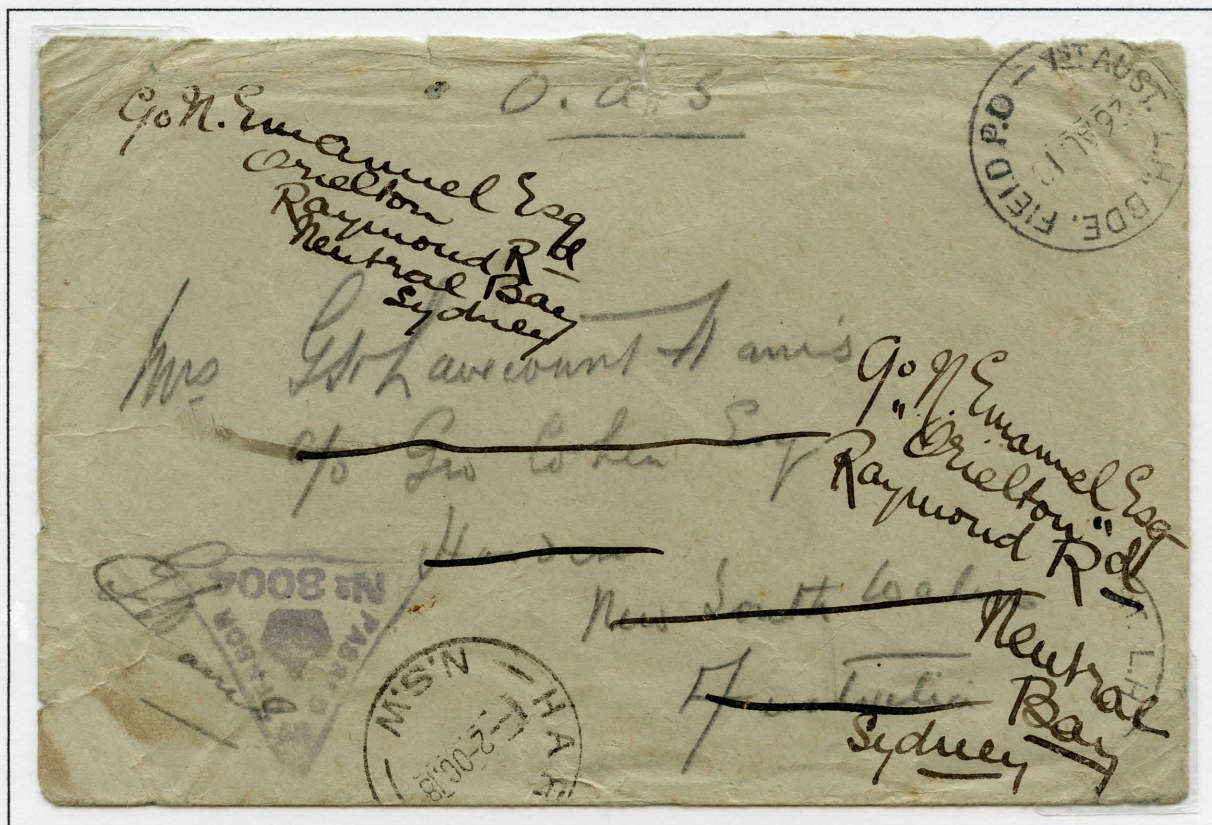 O.A.S
1ST AUST. L.H. BDE. FIELD P.O
C/o N. Emanuel Esq
Orielton
Raymond Rd
Neutral Bay
Sydney
Mrs
c/o Geo Cohen Esq
New South Wales
Australia
C/o N. Emanuel Esq
"Orielton"
Raymond Rd
Neutral
Bay
Sydney
PASSED BY CENSOR
No 3004
N.S.W
2-OC.18
L.H